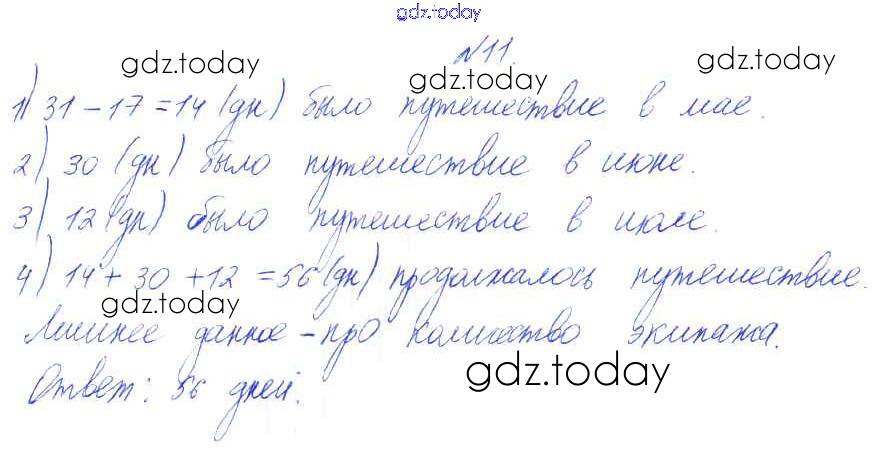 gdz.today
№11.
gdz.today
gdz.today
1) 31 - 17 = 14 (дн) было путешествие в мае.
2) 30 (дн) было путешествие в июне.
3) 12 (дн) было путешествие в июле.
4) 14 + 30 + 12 = 56 (дн) продолжалось путешествие.
gdz.today
gdz.today
Лишнее данное - про количество экипажа.
gdz.today
Ответ: 56 дней.